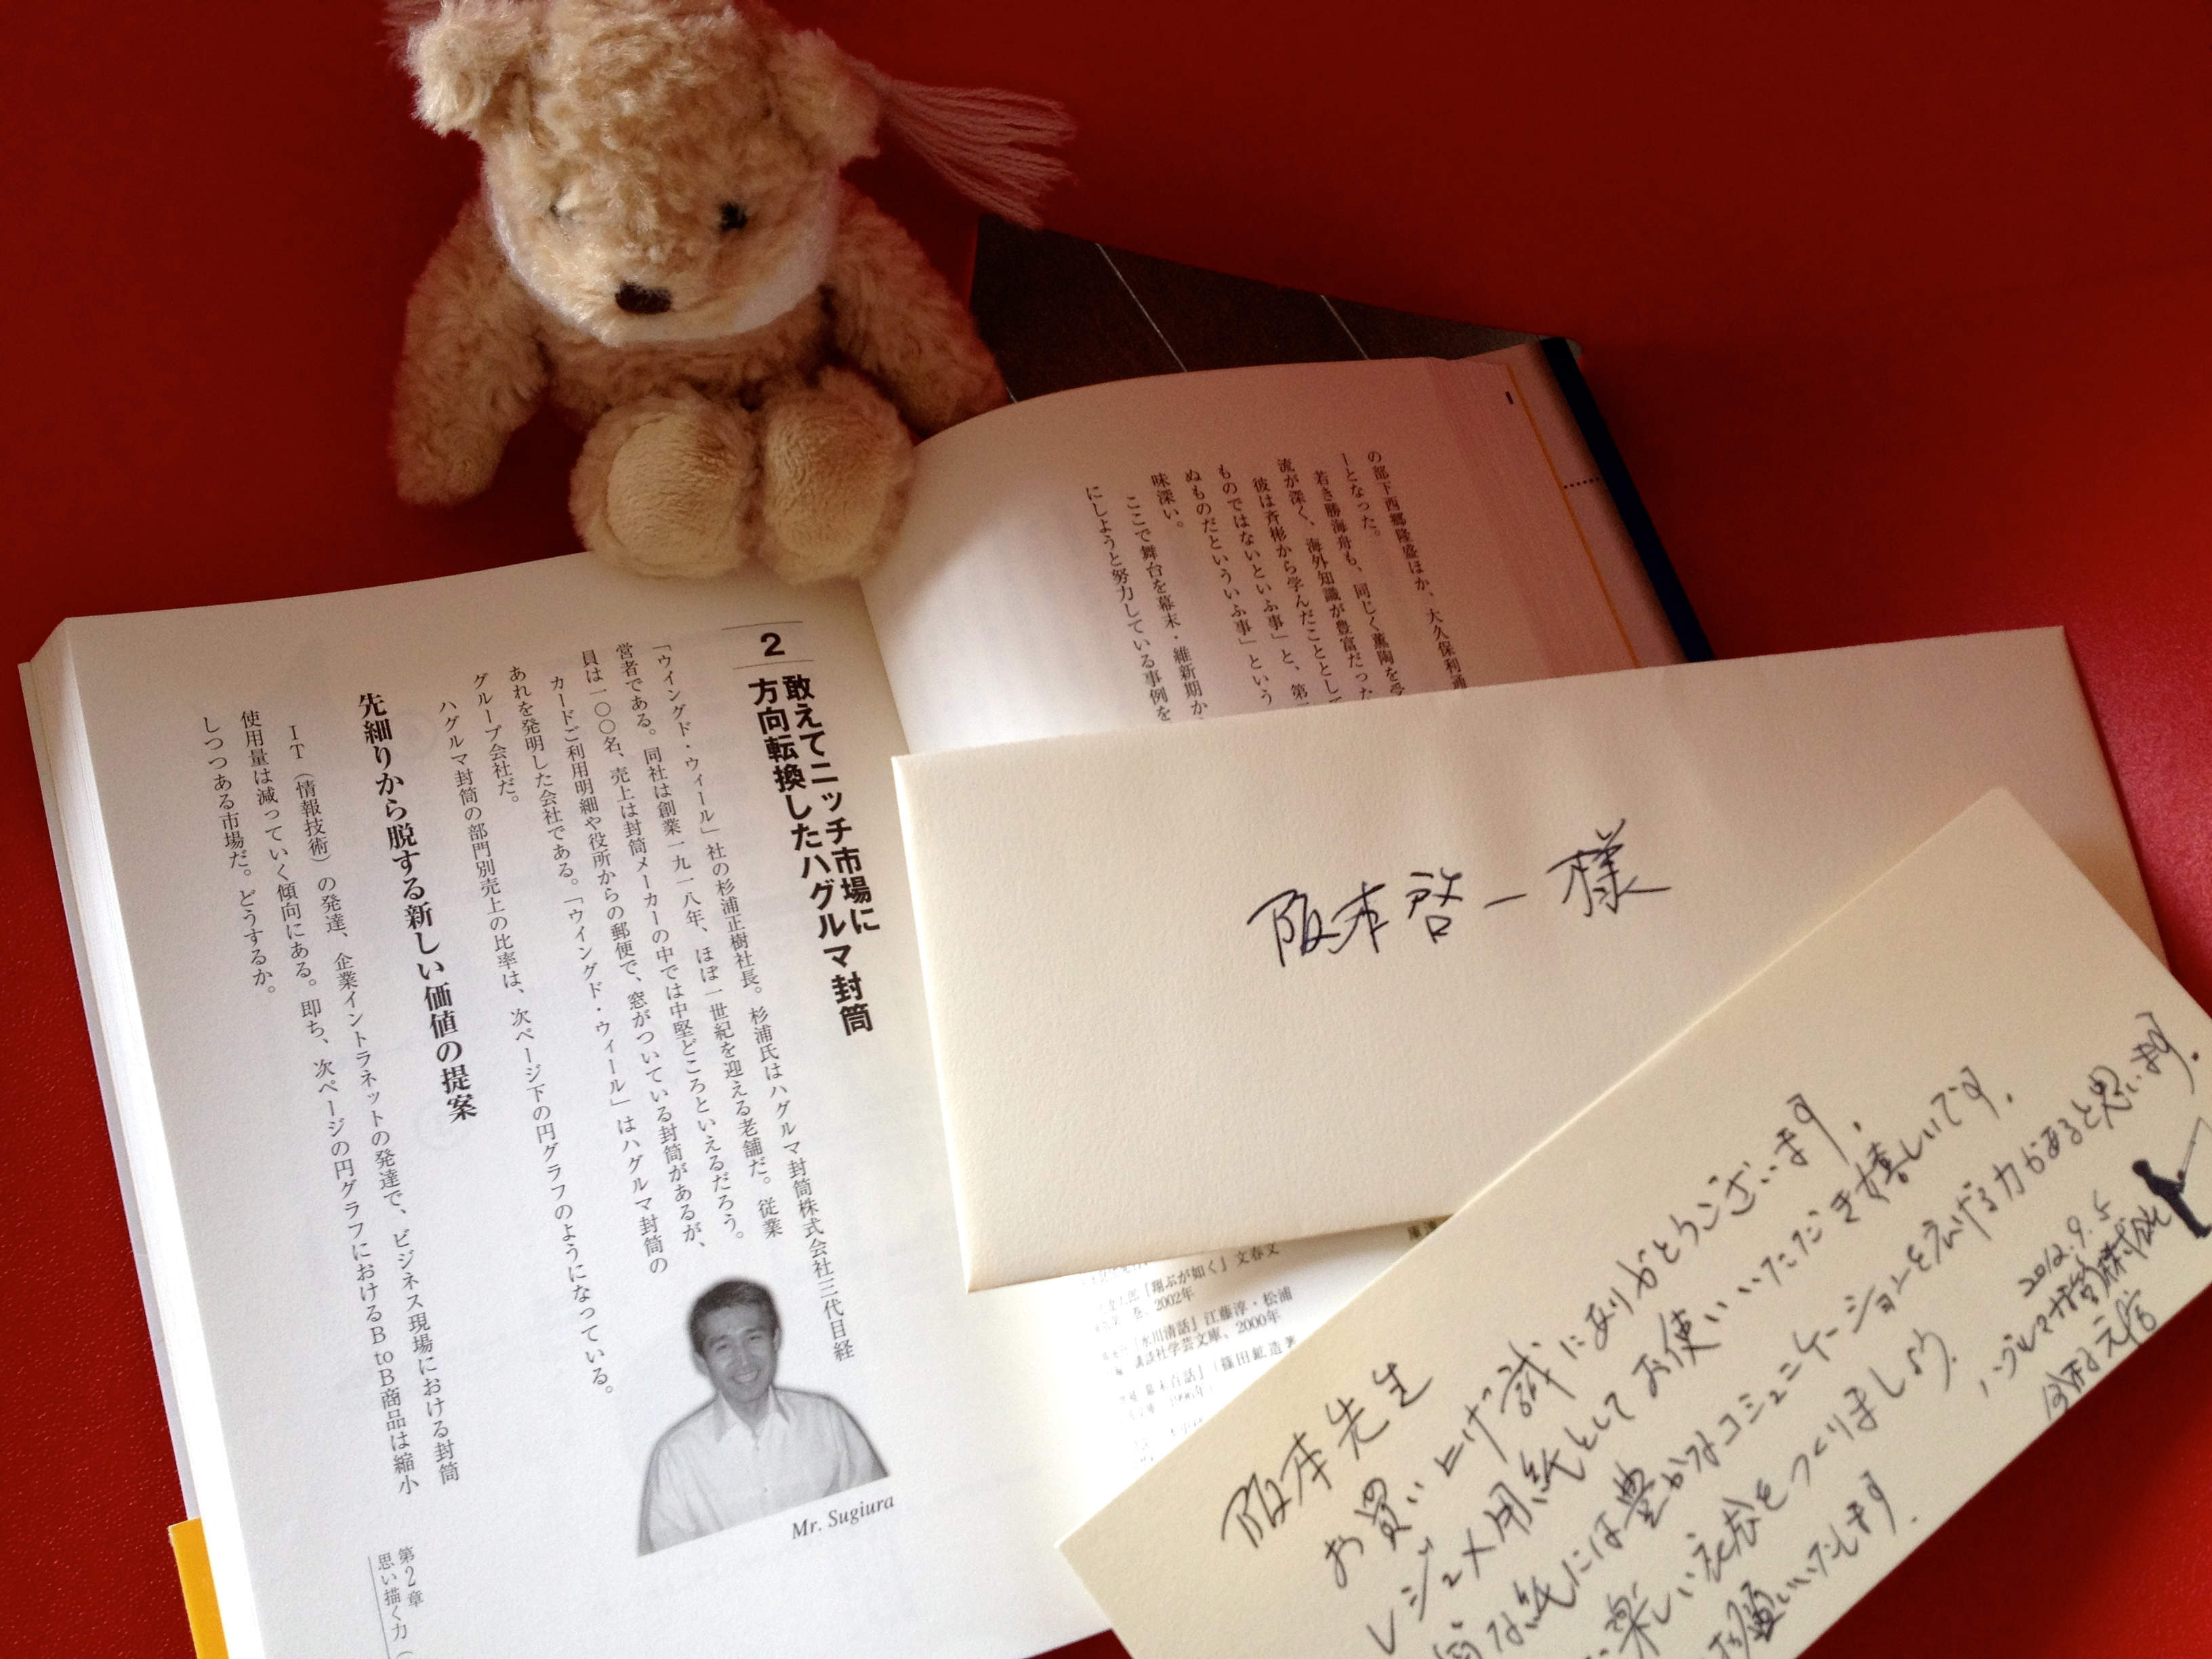 の部下西郷隆盛ほか、大久保利通
ーとなった。
若き勝海舟も、同じく薫陶を受
流が深く、海外知識が豊富だった
彼は斉彬から学んだこととして
ものではないといふ事」と、第
ぬものだといういふ事」という
味深い。
ここで舞台を幕末・維新期か
にしようと努力している事例を
2
敢えてニッチ市場に
方向転換したハグルマ封筒
「ウイングド・ウィール」社の杉浦正樹社長。杉浦氏はハグルマ封筒株式会社三代目経
営者である。同社は創業一九一八年、ほぼ一世紀を迎える老舗だ。従業
員は一〇〇名、売上は封筒メーカーの中では中堅どころといえるだろう。
カードご利用明細や役所からの郵便で、窓がついている封筒があるが、
あれを発明した会社である。「ウイングド・ウィール」はハグルマ封筒の
グループ会社だ。
ハグルマ封筒の部門別売上の比率は、次ページ下の円グラフのようになっている。
先細りから脱する新しい価値の提案
IT(情報技術)の発達、企業イントラネットの発達で、ビジネス現場における封筒
使用量は減っていく傾向にある。即ち、次ページの円グラフにおけるBtoB商品は縮小
しつつある市場だ。どうするか。
Mr. Sugiura
第2章
思い描く力(
阪本啓一様
「翔ぶが如く」文春文
2002年
「氷川清話」江藤淳・松浦
講談社学芸文庫、2000年
幕末百話」(篠田鉱造著
1996年
阪本先生
お買い上げ誠にありがとうございます。
レジュメ用紙としてお使いいただき嬉しいです。
な紙には豊かなコミュニケーションを広げる力があると思います。
楽しい社会をつくりましょう。
お願いいたします。
2012.9.5
ハグルマ封筒株式会社